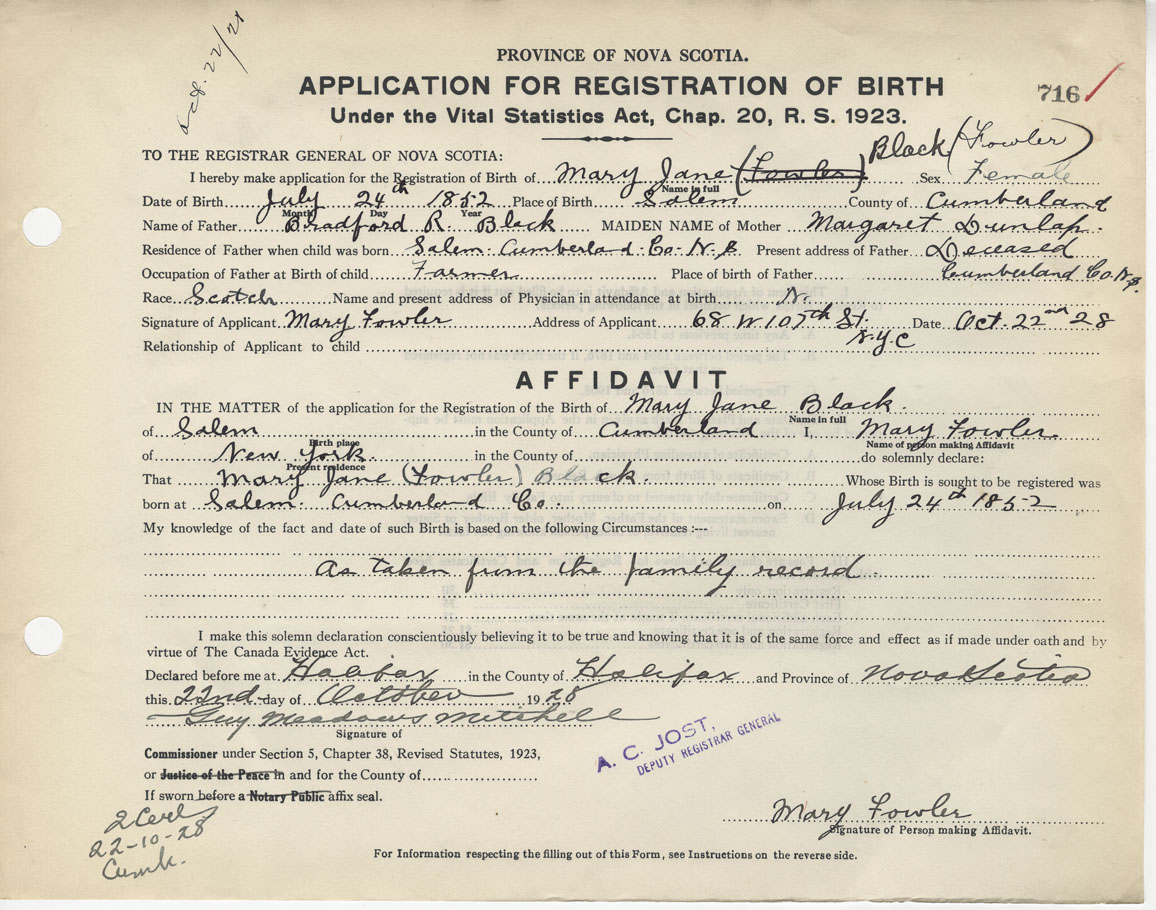 Oct. 22/28
PROVINCE OF NOVA SCOTIA.
APPLICATION FOR REGISTRATION OF BIRTH
716
Under the Vital Statistics Act, Chap. 20, R. S. 1923.
TO THE REGISTRAR GENERAL OF NOVA SCOTIA:
I hereby make application for the Registration of Birth of Mary Jane (Fowler) Black (Fowler) Sex Female
Name in full
Date of Birth July 24th 1852 Place of Birth Salem County of Cumberland
Month Day Year
Name of Father Bradford R. Black MAIDEN NAME of Mother Margaret Dunlap.
Residence of Father when child was born Salem Cumberland Co. N.S Present address of Father Deceased
Occupation of Father at Birth of child Farmer Place of birth of Father Cumberland Co. N.S.
Race Scotch Name and present address of Physician in attendance at birth N.
Signature of Applicant Mary Fowler Address of Applicant 68 W 107th St. Date Oct. 22nd 28
N.Y.C
Relationship of Applicant to child
AFFIDAVIT
IN THE MATTER of the application for the Registration of the Birth of Mary Jane Black.
Name in full
of Salem in the County of Cumberland I, Mary Fowler.
Birth place Name of person making Affidavit
of New York. in the County of do solemnly declare:
Present residence
That Mary Jane (Fowler) Black. Whose Birth is sought to be registered was
born at Salem Cumberland Co. on July 24th 1852
My knowledge of the fact and date of such Birth is based on the following Circumstances :---
As taken from the family record.
I make this solemn declaration conscientiously believing it to be true and knowing that it is of the same force and effect as if made under oath and by
virtue of The Canada Evidence Act.
Declared before me at Halifax in the County of Halifax and Province of Nova Scotia
this 22nd day of October 1928
Guy Meadows Mitchell
Signature of
A. C. JOST,
DEPUTY REGISTRAR GENERAL
Commissioner under Section 5, Chapter 38, Revised Statutes, 1923,
or Justice of the Peace in and for the County of
If sworn before a Notary Public affix seal.
2 Cert
22-10-28
Cumb.
Mary Fowler
Signature of Person making Affidavit.
For Information respecting the filling out of this Form, see Instructions on the reverse side.